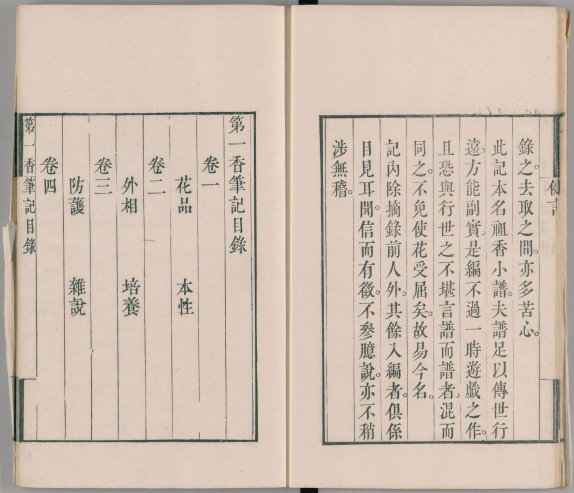 錄之去取之間。亦多苦心。
此記本名祖香小譜。夫譜足以傳世行
遠。方能副實。是編不過一時遊戲之作。
且恐與行世之不堪言譜而譜者。混而
同之。不免使花受屈矣。故易今名。
記內除摘錄前人外。其餘入編者。俱係
目見耳聞。信而有徵。不參臆說。亦不稍
涉無稽。
第一香筆記目錄
卷一
花品 本性
卷二
外相 培養
卷三
防護 雜說
卷四
第一香筆記目錄